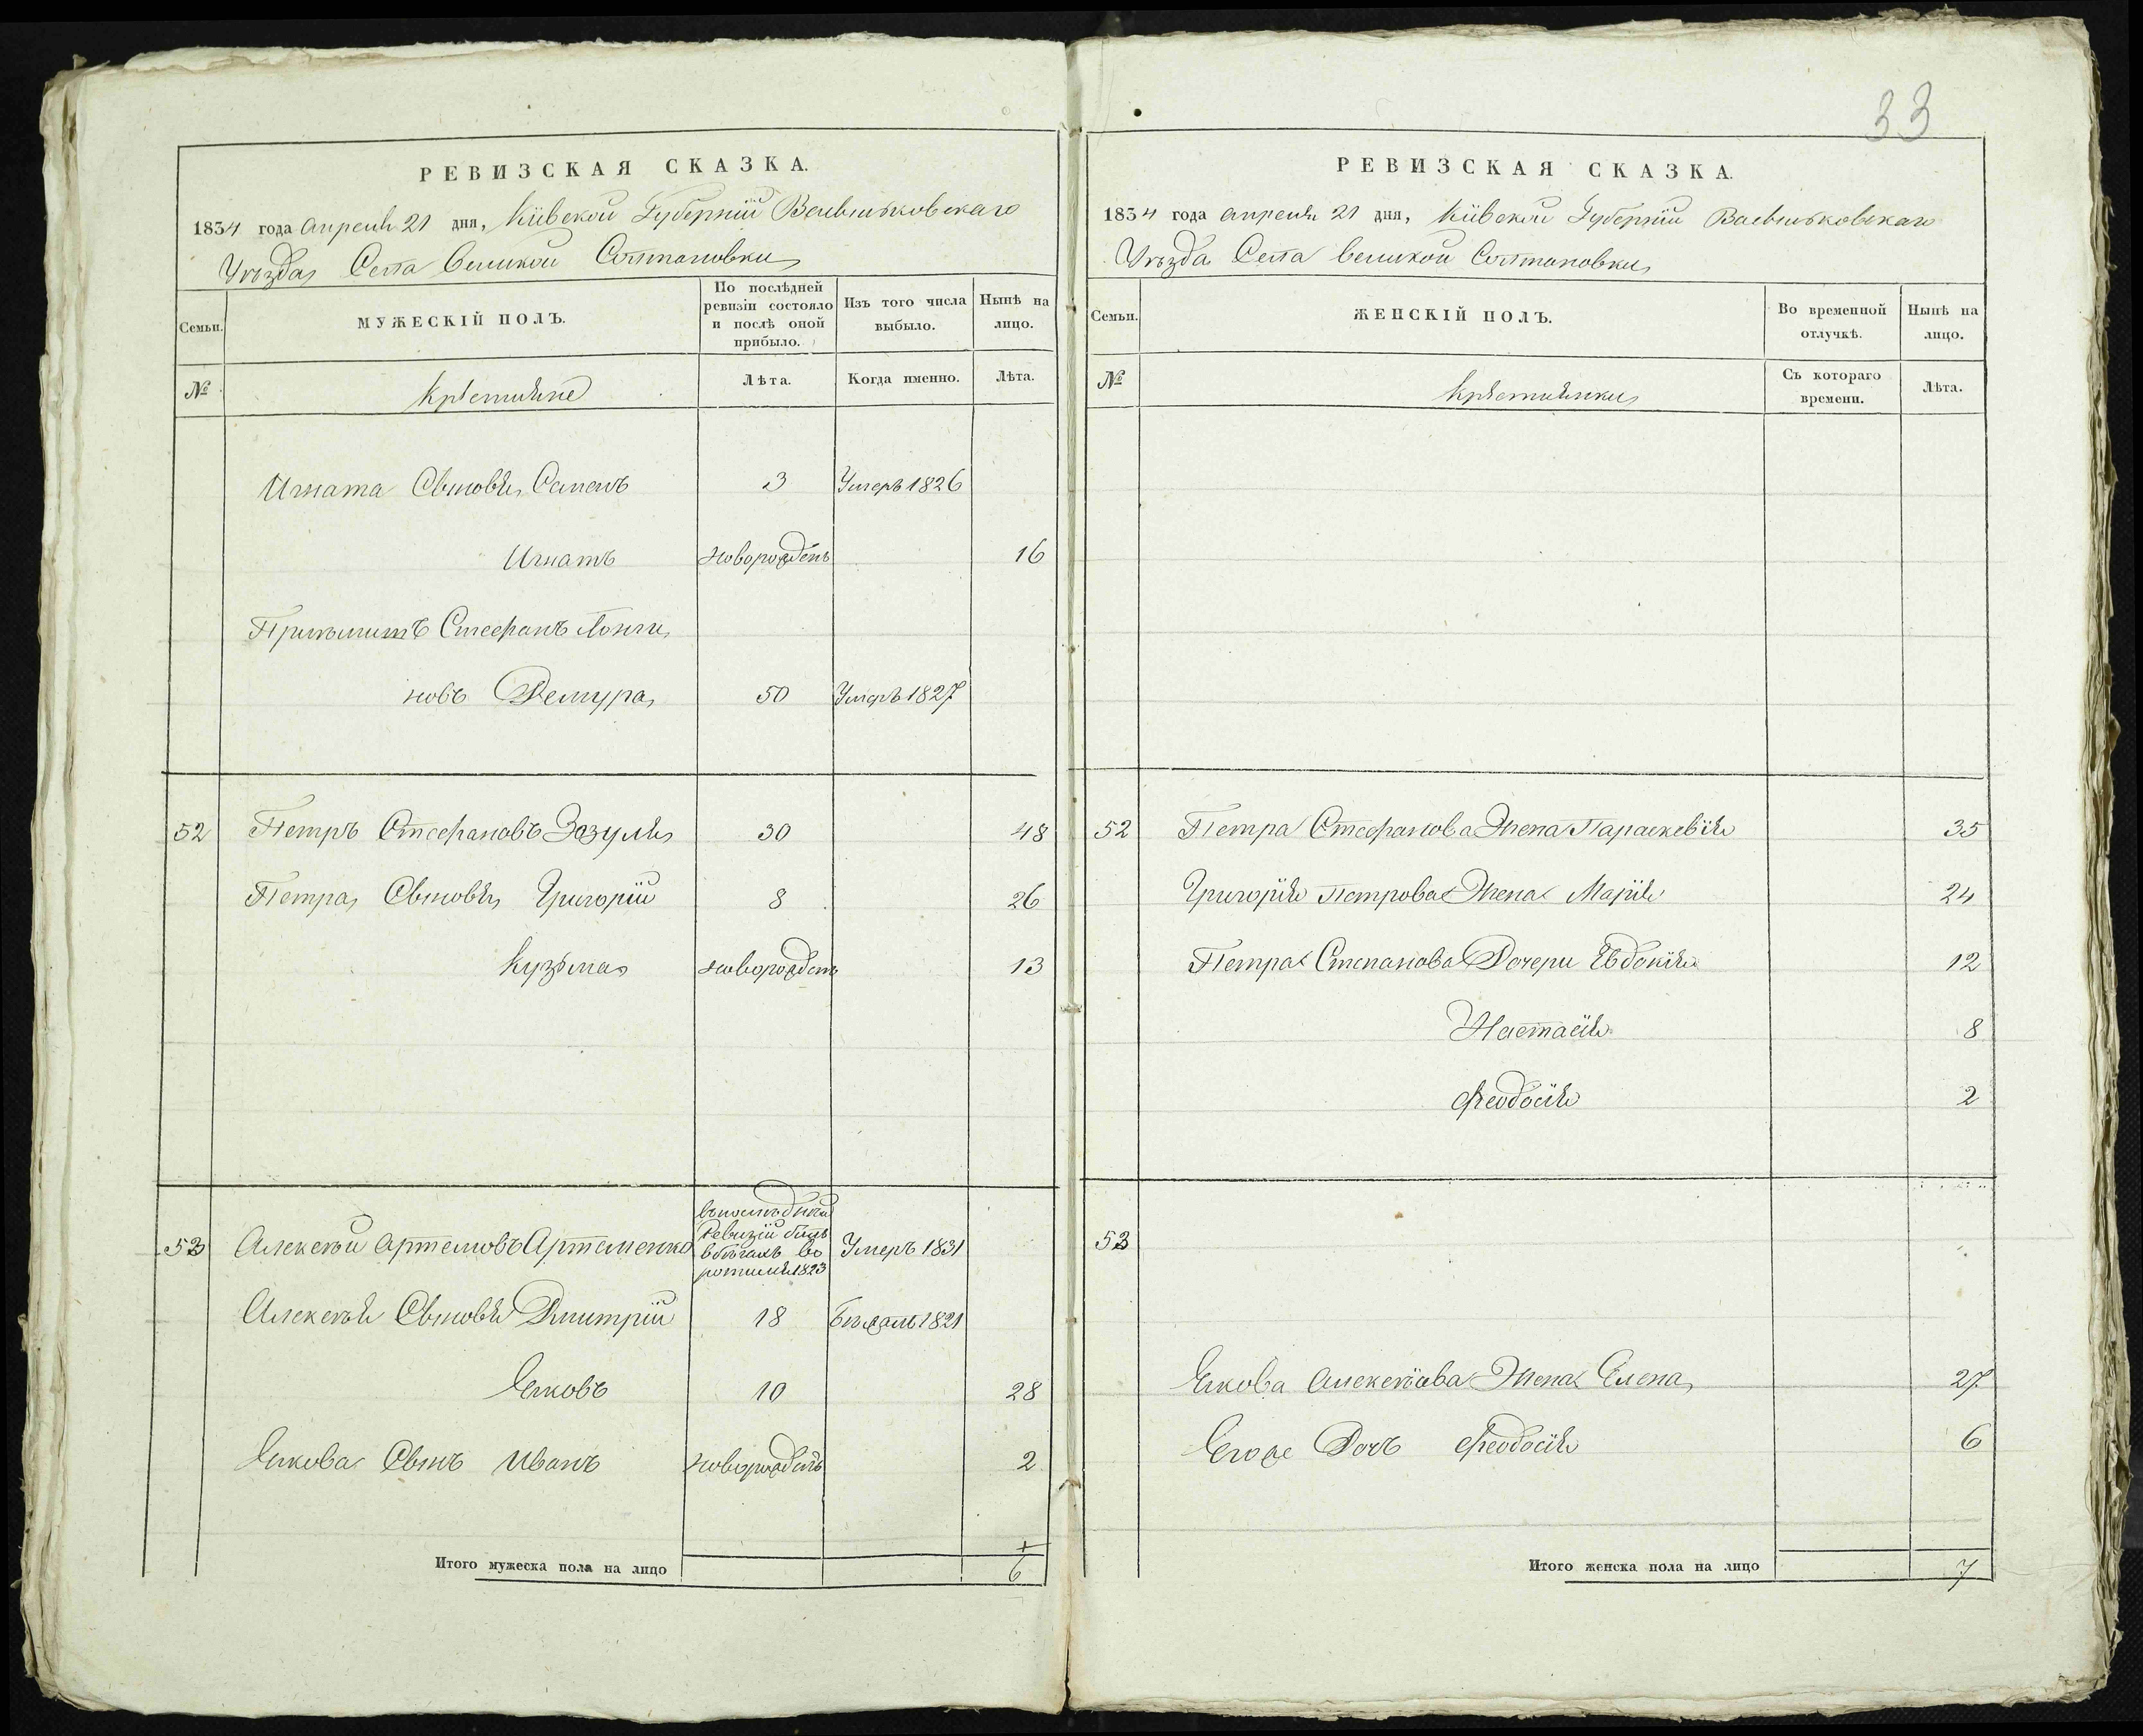 33
РЕВИЗСКАЯ СКАЗКА.
1834 года Апреля 21 дня, Кіевской Губерніи Васильковскаго
Уѣзда Села Великой Солтановки
Семьи. МУЖЕСКІЙ ПОЛЪ. По послѣдней ревизіи состояло и послѣ оной прибыло. Изъ того числа выбыло. Нынѣ на лицо.
№ Крѣстьяне Лѣта. Когда именно. Лѣта.
Игната Сыновья Семенъ 3 Умеръ 1826
Игнатъ новорожденъ 16
Стефанъ
новъ Демура 50 Умеръ 1827
52 Петръ Стефановъ Зозуля 30 48
Петра Сыновья Григорій 8 26
Кузьма новорожденъ 13
53 Алексѣй Артемовъ Артеменко въ последней Ревизіи былъ в бѣгахъ воротился 1823 Умеръ 1831
Алексѣя Сыновья Дмитрій 18 Бѣжалъ 1821
Яковъ 10 28
Якова Сынъ Иванъ новорожденъ 2
Итого мужеска пола на лицо 6
РЕВИЗСКАЯ СКАЗКА.
1834 года Апреля 21 дня, Кіевской Губерніи Васильковскаго
Уѣзда Села Великой Солтановки
Семьи. ЖЕНСКІЙ ПОЛЪ. Во временной отлучкѣ. Нынѣ на лицо.
№ Крѣстьянки Съ котораго времени. Лѣта.
52 Петра Стефанова Жена Параскевія 35
Григорія Петрова Жена Марія 24
Петра Степанова Дочери Евдокія 12
Настасія 8
Феодосія 2
53
Якова Алексѣева Жена Елена 27
Егоже Дочь Феодосія 6
Итого женска пола на лицо 7